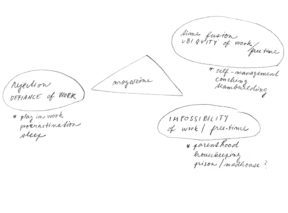 time fusion
UBIQUITY of work/
free time
* self-management
coaching
teambuilding
magazine
rejection
DEFIANCE of WORK
* play in work
procrastination
sleep
IMPOSSIBILITY
of work / free-time
* parenthood
housekeeping
prison / madhouse?